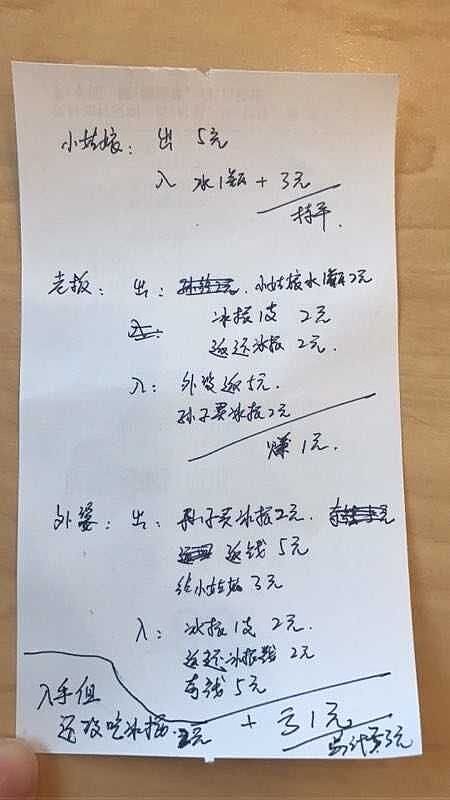 小姑娘： 出 5元
入 水1瓶 + 3元
持平.
老板： 出： 小姑娘水1瓶2元
冰棍1支 2元
返还冰棍 2元.
入： 外婆返5元.
孙子买冰棍2元
赚1元.
外婆： 出： 孙子买冰棍2元.
返钱 5元
给小姑娘 3元
入： 冰棍1支 2元.
返还冰棍钱 2元
5元
入手但
还没吃冰棍. 2元 + 亏1元
3元